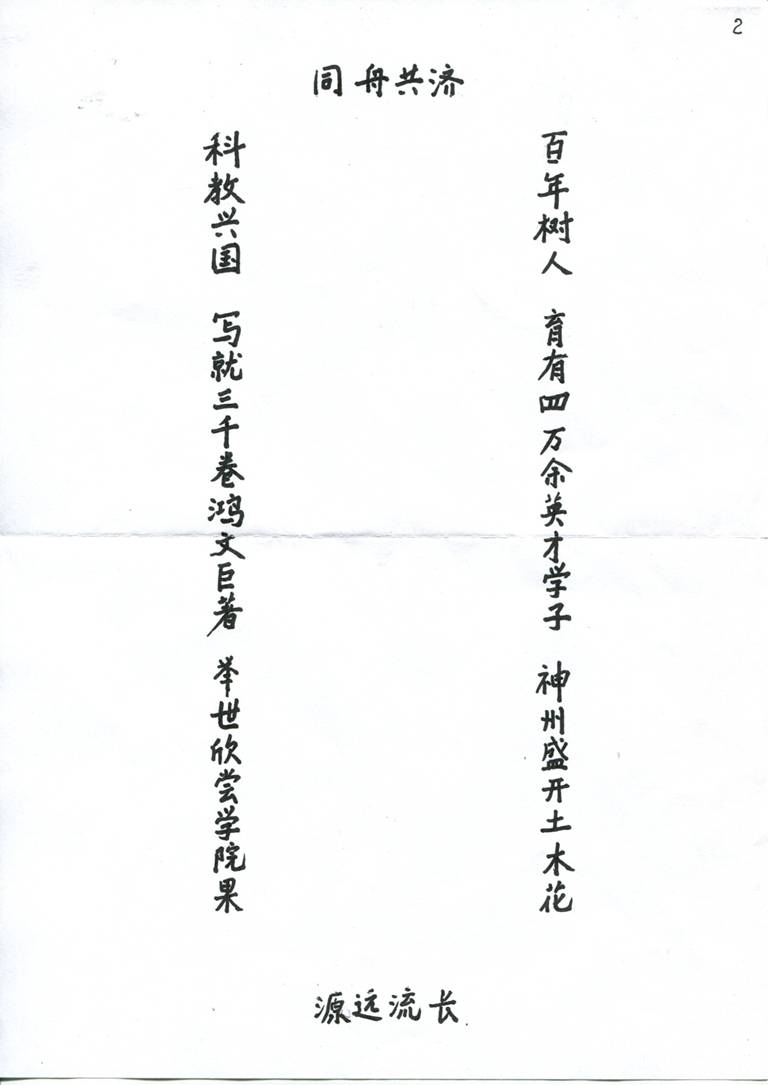 2
同舟共济
百年树人 育有四万余英才学子 神州盛开土木花
科教兴国 写就三千卷鸿文巨著 举世欣尝学院果
源远流长